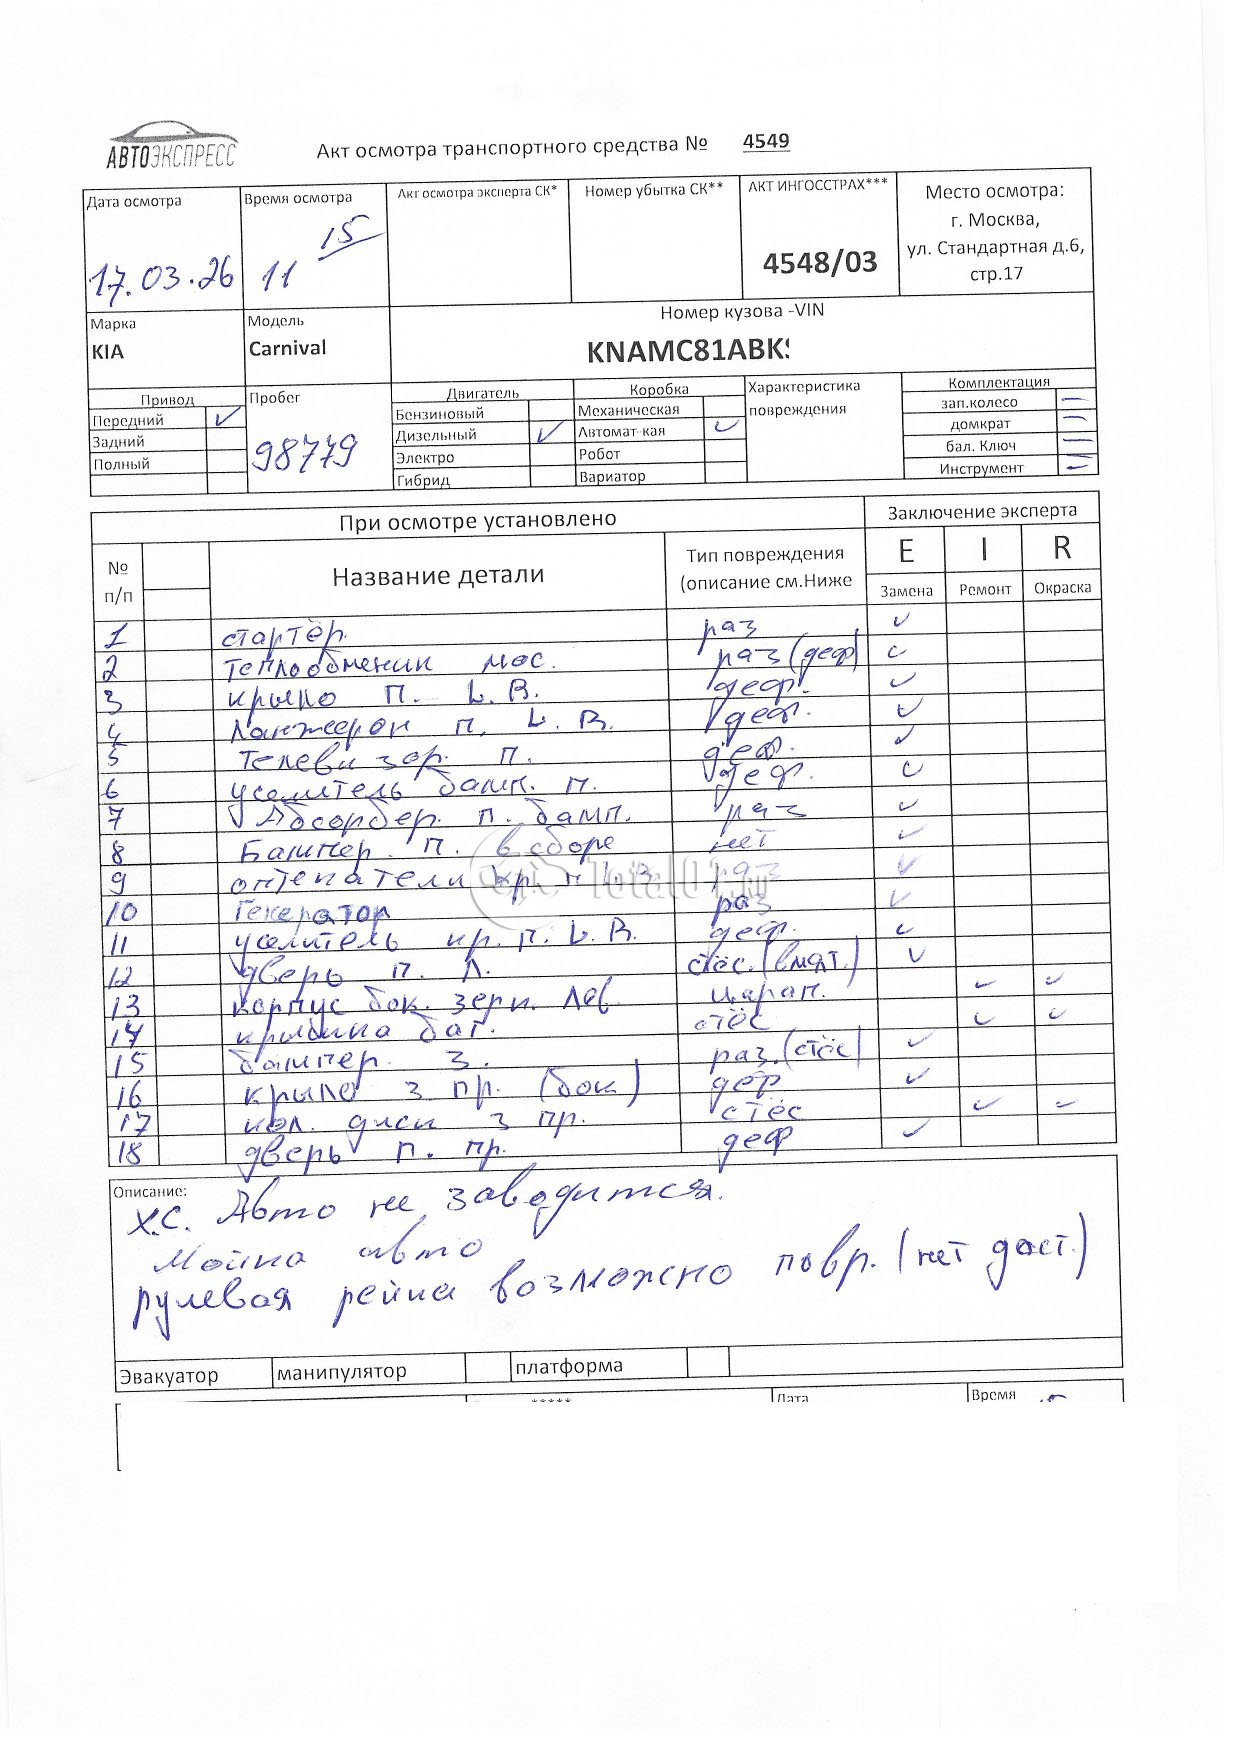 АВТОЭКСПРЕСС
Акт осмотра транспортного средства № 4549
Дата осмотра
17.03.26
Время осмотра
11 15
Акт осмотра эксперта СК*
Номер убытка СК**
АКТ ИНГОССТРАХ***
4548/03
Место осмотра:
г. Москва,
ул. Стандартная д.6,
стр.17
Марка
KIA
Модель
Carnival
Номер кузова -VIN
KNAMC81ABK
Привод
Передний ✓
Задний
Полный
Пробег
98779
Двигатель
Бензиновый
Дизельный ✓
Электро
Гибрид
Коробка
Механическая
Автомат-кая ✓
Робот
Вариатор
Характеристика
повреждения
Комплектация
зап.колесо –
домкрат –
бал. Ключ –
Инструмент –
При осмотре установлено
Заключение эксперта
№
п/п
Название детали
Тип повреждения
(описание см.Ниже
E I R
Замена Ремонт Окраска
1 стартёр. раз ✓
2 теплообменник мас. раз (деф) ✓
3 крыло п. L.В. деф. ✓
4 Лонжерон п. L.В. деф. ✓
5 Телевизор. п. деф. ✓
6 усилитель бамп. п. деф. ✓
7 Абсорбер. п. бамп. раз ✓
8 Бампер. п. в сборе нет ✓
9 раз ✓
10 Генератор раз ✓
11 усилитель кр. п. L.В. деф. ✓
12 дверь п. Л. стёс. (вмят.) ✓
13 корпус бок. зерк. лев. царап. ✓ ✓
14 крышка баг. стёс ✓ ✓
15 бампер. з. раз. (стёс) ✓
16 крыло з пр. (бок) деф ✓
17 кол. диск з пр. стёс ✓ ✓
18 дверь п. пр. деф ✓
Описание:
Х.С. Авто не заводится.
Мойка авто
рулевая рейка возможно повр. (нет дост.)
Эвакуатор
манипулятор
платформа
*****
Дата
Время
Total01.ru